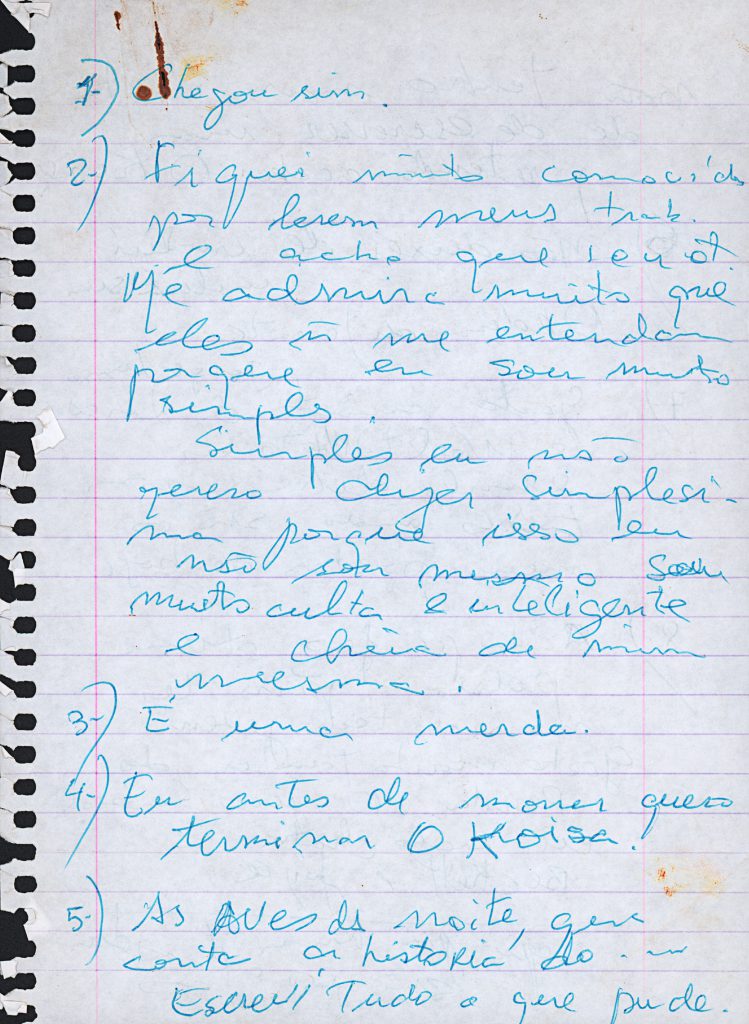 1-) Chegou sim.
2-) Fiquei muito comovida
por lerem meus trab.
e acho que sou ót.
Me admira muito que
eles ñ me entendam
porque eu sou muito
simples.
Simples eu não
quero dizer simplesi-
ma porque isso eu
não sou mesmo sou
muito culta e inteligente
e cheia de mim
mesma.
3-) É uma merda.
4-) Eu antes de morrer quero
terminar O Koisa.
5-) As Aves da noite, que
conta a historia do
Escrevi Tudo o que pude.